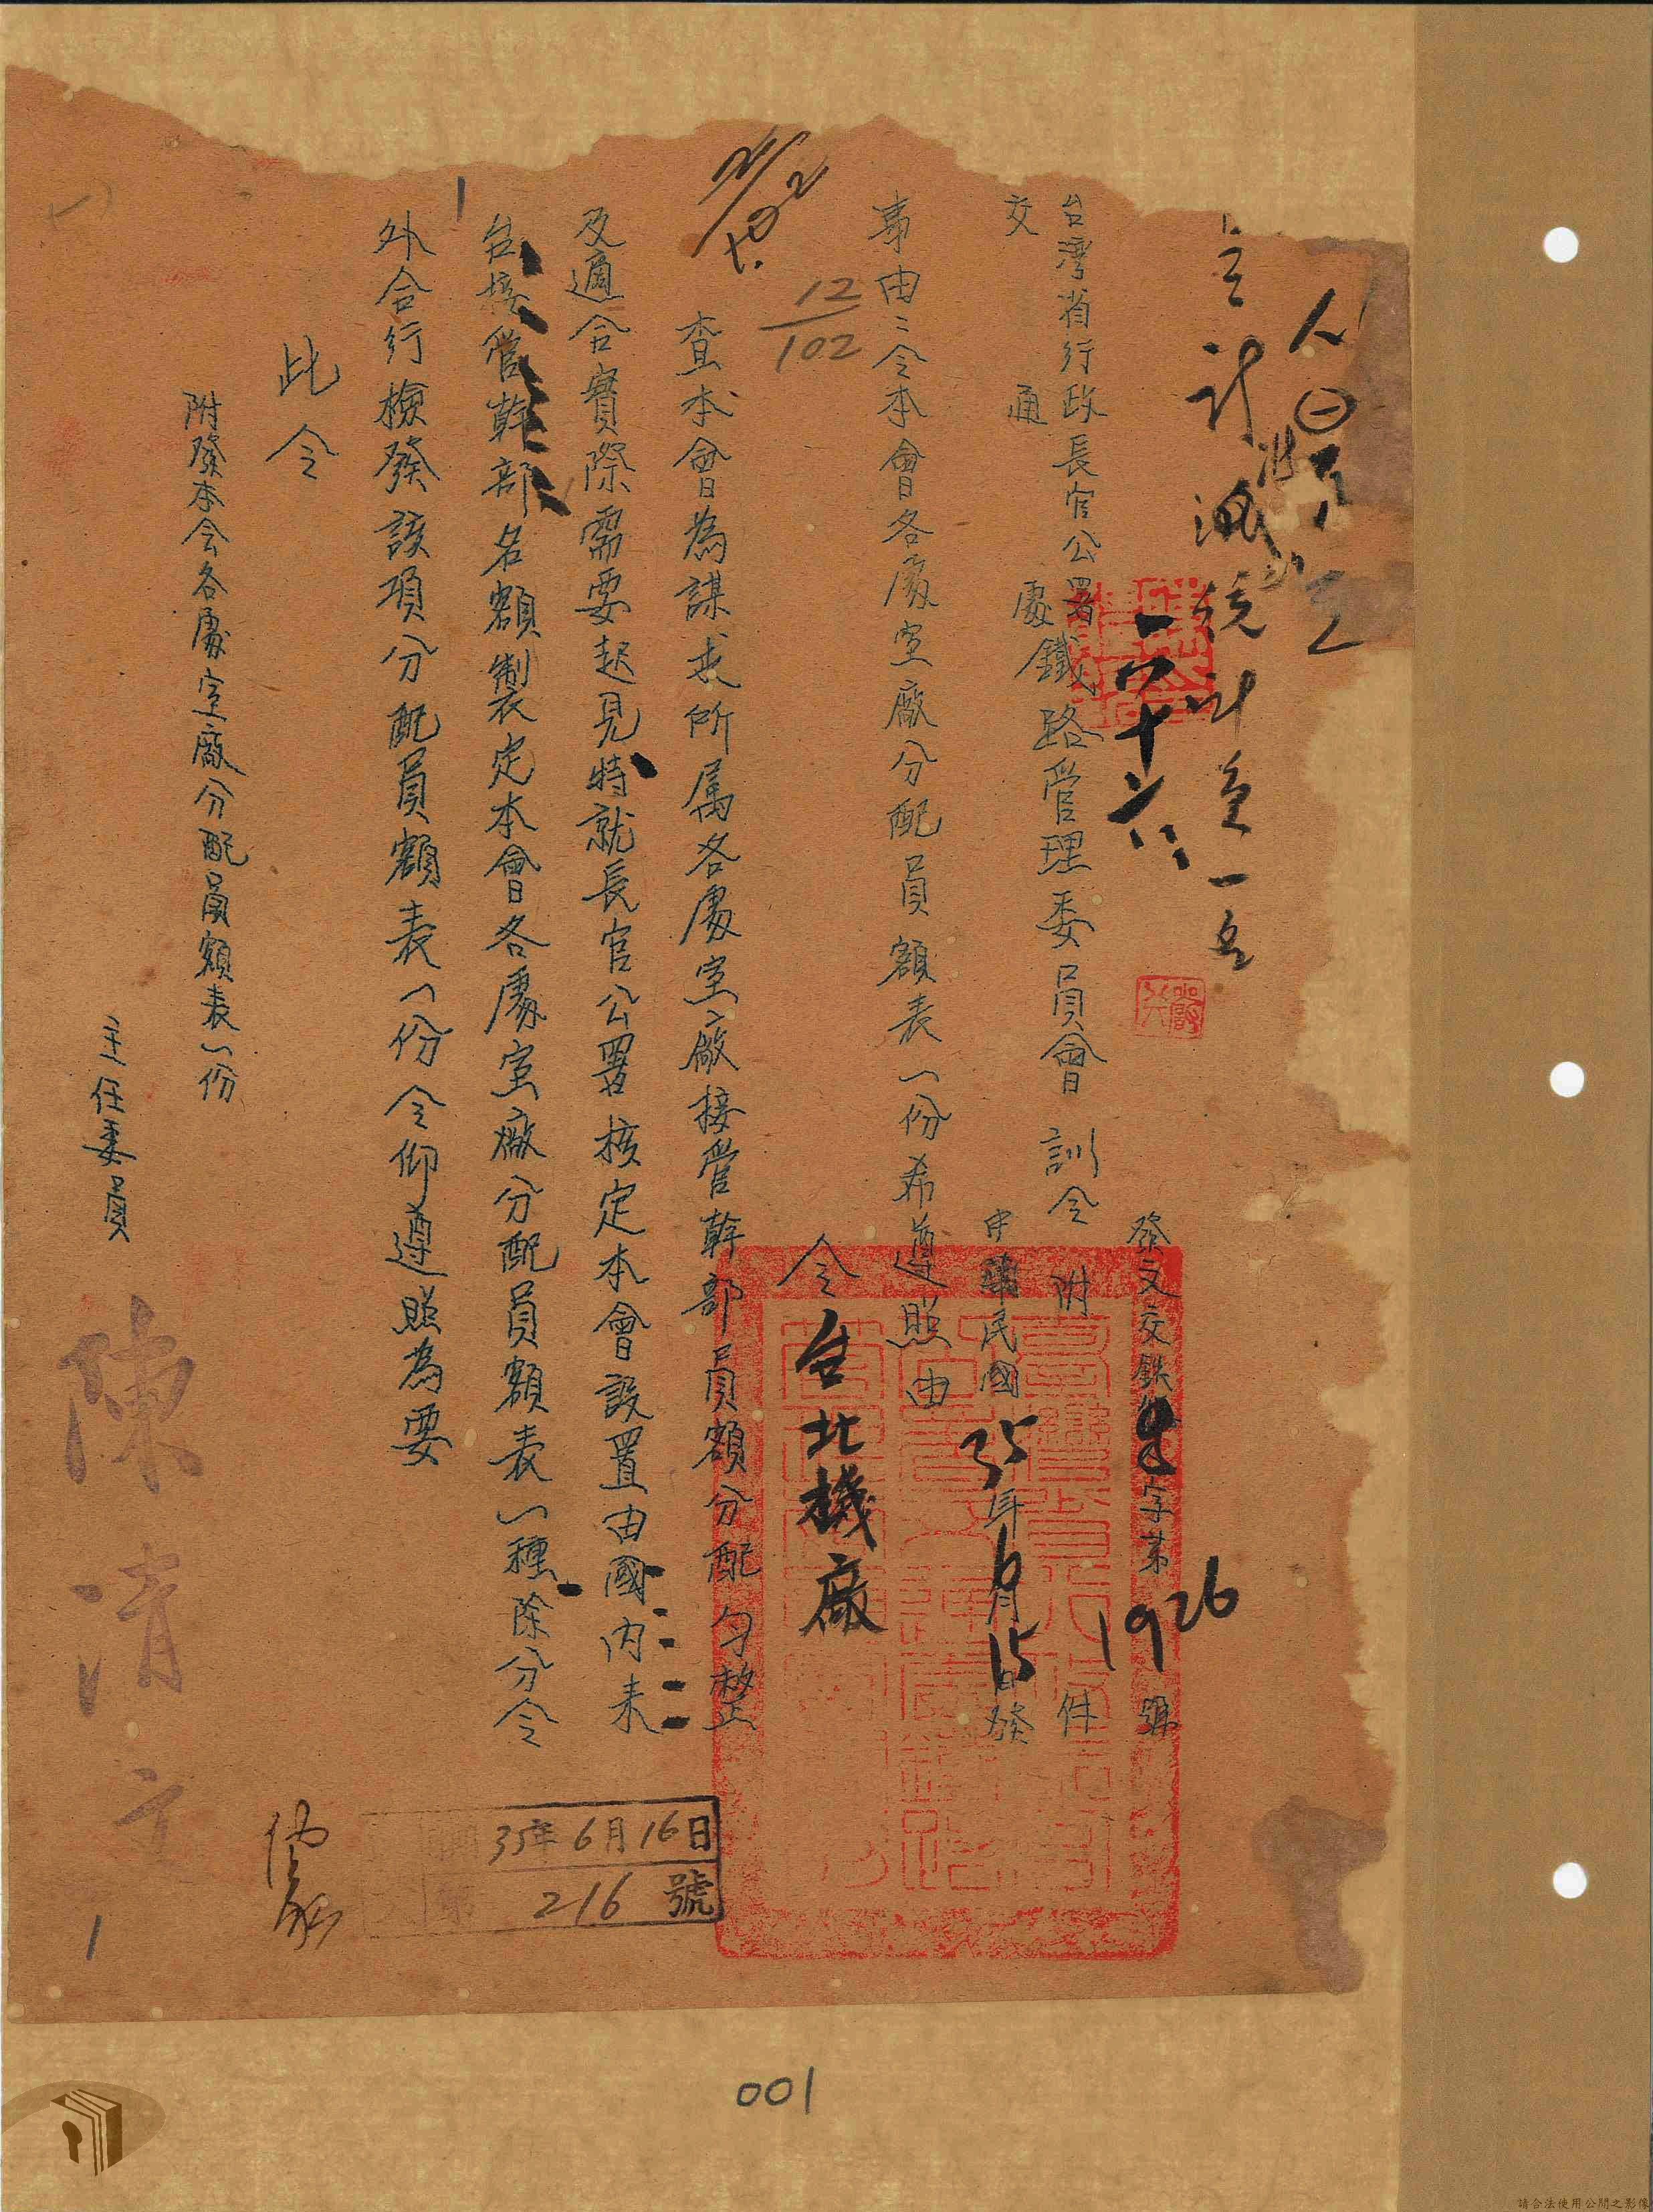 發文交鉄
字第1926號
台灣省行政長官公署鐵路管理委員會 訓令 附 件
交通處
中華民國35年6月15日發
事由：令本會各處室廠分配員額表一份希遵照由
令台北機廠
12
102
查本會為謀求所属各處室廠接管幹部員額分配勻整
及適合實際需要起見特就長官公署核定本會設置由國內来
台接管幹部名額製定本會各處室廠分配員額表一種除分令
外合行檢發該項分配員額表一份令仰遵照為要
此令
附發本会各處室廠分配員額表一份
主任委員
陳清文
35年6月16日
216號
1
001
請合法使用公開之影像